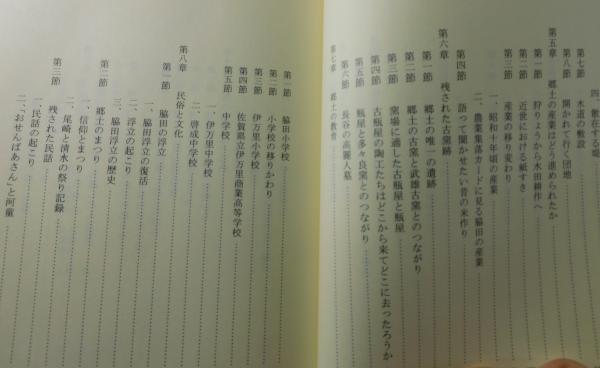 四、散在する堤
第七節 水道の敷設
第八節 開かれて行く団地
第五章 郷土の産業はどう進められたか
第一節 狩りょうから水田耕作へ
第二節 近世における紙すき
第三節 産業の移り変わり
一、昭和十年頃の産業
二、農業集落カードに見る脇田の産業
第四節 語って聞かせたい昔の米作り
第六章 残された古窯跡
第一節 郷土の唯一の遺跡
第二節 郷土の古窯と武雄古窯とのつながり
第三節 窯場に適した古瓶屋と瓶屋
第四節 古瓶屋の陶工たちはどこから来てどこに去ったろうか
第五節 瓶屋と多々良窯とのつながり
第六節 長谷の高麗人墓
第七章 郷土の教育
第一節 脇田小学校
第二節 小学校の移りかわり
第三節 伊万里小学校
第四節 佐賀県立伊万里商業高等学校
第五節 中学校
一、伊万里中学校
二、啓成中学校
第八章 民俗と文化
第一節 脇田の浮立
一、脇田浮立の復活
二、浮立の起こり
三、脇田浮立の歴史
第二節 郷土のまつり
一、信仰とまつり
二、尾崎と清水の祭り記録
第三節 残された民話
一、民話の起こり
二、「おせんばあさん」と河童